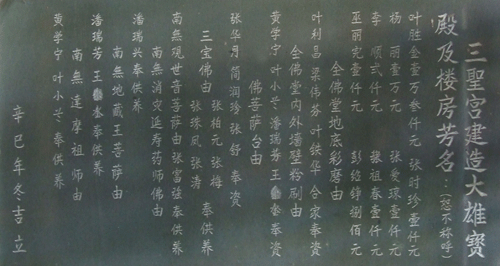 三聖宮建造大雄寳
殿及楼房芳名:(恕不称呼)
叶胜金壹万叁仟元 张时珍壹仟元
杨 丽壹万元 张爱琛壹仟元
李 順弍仟元 张祖春壹仟元
巫丽宪壹仟元 彭經錚捌佰元
全佛堂地底彩磨由
叶利昌 梁伟芬 叶鉄华 合家奉资
全佛堂内外墙壁粉刷由
黄学宁 叶小芒 潘瑞芳 王 奉资
佛菩萨台由
张华月 简润珍 张舒 奉资
三宝佛由
张柏元 张梅
张珠凤 张涛 奉供养
南無观世音菩萨由 张富強奉供养
南無消灾延寿药师佛由
潘瑞兴奉供养
南無地藏王菩萨由
潘瑞芳 王 奉供养
南無達摩祖师由
黄学宁 叶小芒 奉供养
辛巳年冬吉立